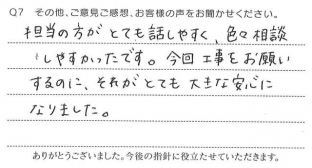 Q7 その他、ご意見ご感想、お客様の声をお聞かせください。
担当の方がとても話しやすく、色々相談
しやすかったです。今回工事をお願い
するのに、それがとても大きな安心に
なりました。
ありがとうございました。今後の指針に役立たせていただきます。